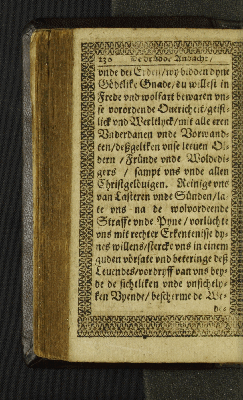 230 De drüdde Andacht/
vnde der Erden/ wy bidden dyne
Gödtlike Gnade/ du willest in
Frede vnd wolfart bewaren vn-
se vorordende Ouericheit/ geist-
lick vnd Werltlyck/ mit alle eren
Vnderdanen vnde Vorwand-
ten/ desgeliken vnse leuen Ol-
dern / Fründe vnde Woldedi-
gers / sampt vns vnde allen
Christgelöuigen. Reinige vns
van Lasteren vnde Sünden/ la-
te vns na de wolvordeende
Straffe vnde Pyne / vorlücht
vns mit rechter Erkentenisse dy-
nes willens/ stercke vns in einem
guden vörsate vnd beteringe des
Leuendes/ vordryff van vns bey-
de de sichtliken vnde vnsichtly-
ken Vyende/ bescherme de We-